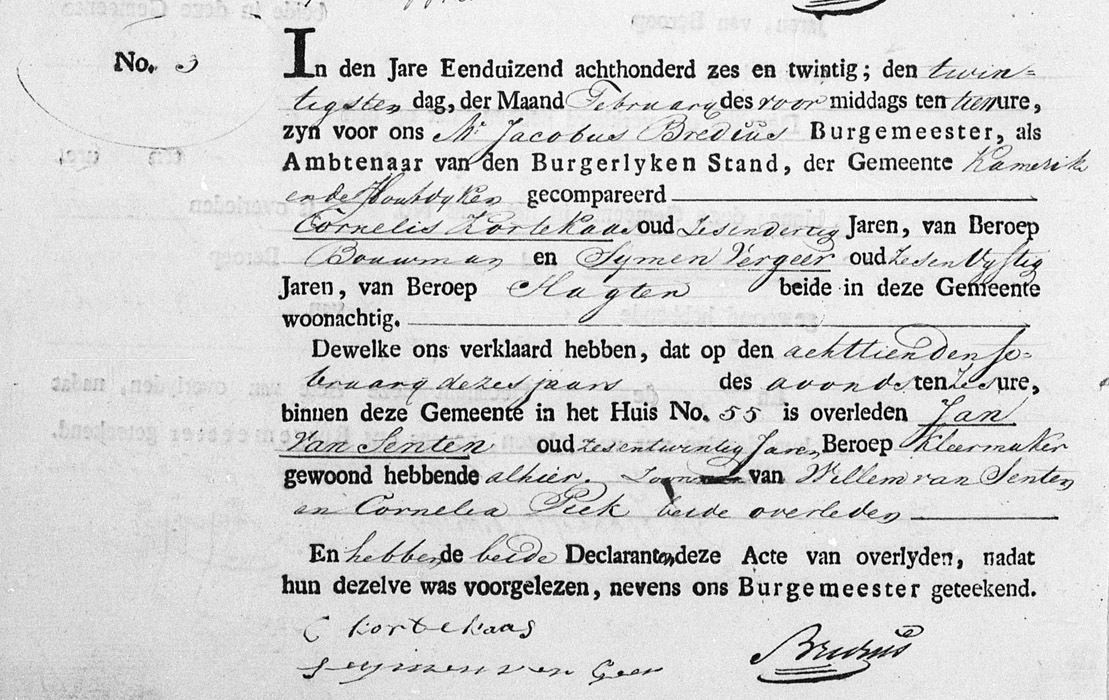 No. 3
In den Jare Eenduizend achthonderd zes en twintig; den twin-
tigsten dag, der Maand February des voor middags ten tien ure,
zyn voor ons Mr Jacobus Bredius Burgemeester, als
Ambtenaar van den Burgerlyken Stand, der Gemeente Kamerik
en de Houtdyken gecompareerd
Cornelis Kortekaas oud zesendertig Jaren, van Beroep
Bouwman en Symen Vergeer oud zesenvyftig
Jaren, van Beroep beide in deze Gemeente
woonachtig.
Dewelke ons verklaard hebben, dat op den achttienden fe-
bruary dezes jaars des avonds ten zes ure,
binnen deze Gemeente in het Huis No. 55 is overleden Jan
Van Senten oud zesentwintig Jaren, Beroep Kleermaker
gewoond hebbende alhier. Zoon van Willem van Senten
en Cornelia Piek beide overleden
En hebbende beide Declaranten deze Acte van overlyden, nadat
hun dezelve was voorgelezen, nevens ons Burgemeester geteekend.
C Kortekaas
Bredius
Seymen ver Geer